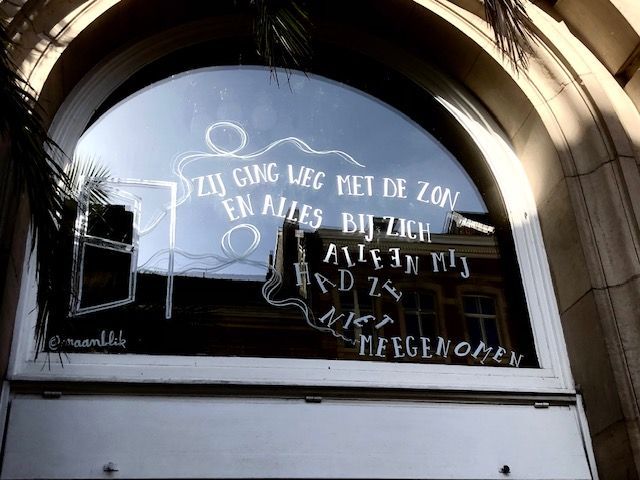 ZIJ GING WEG MET DE ZON
EN ALLES BIJ ZICH
ALLEEN MIJ
HAD ZE
NIET
MEEGENOMEN
@maanblik